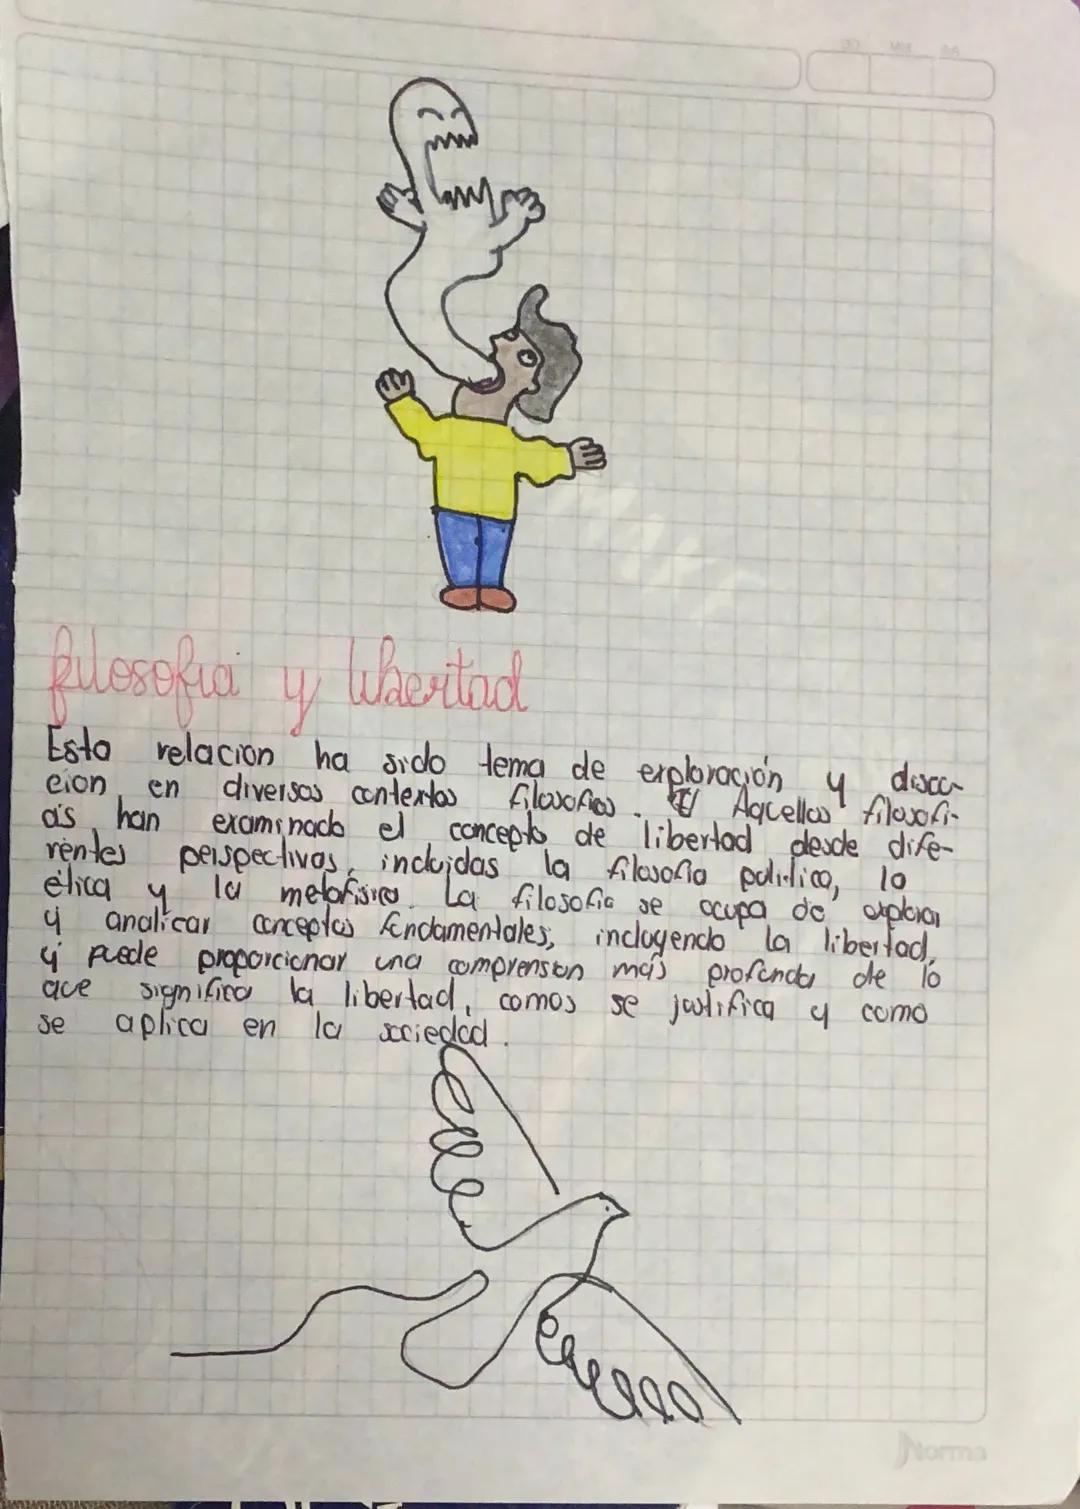 DD MM AA
filosofia y libertad
Esta relacion ha sido tema de exploración y discu-
cion en diversos contextos filosoficos. Aquellas filosofi-
as han examinado el concepto de libertad desde dife-
rentes perspectivas, incluidas la filosofia politica, la
etica y la metafisica. La filosofia se ocupa de explorar
y analicar conceptos fundamentales, incluyendo la libertad,
y puede proporcionar una comprension más profunda de lo
que significa la libertad, comos se justifica y como
se aplica en la sociedad.
Norma